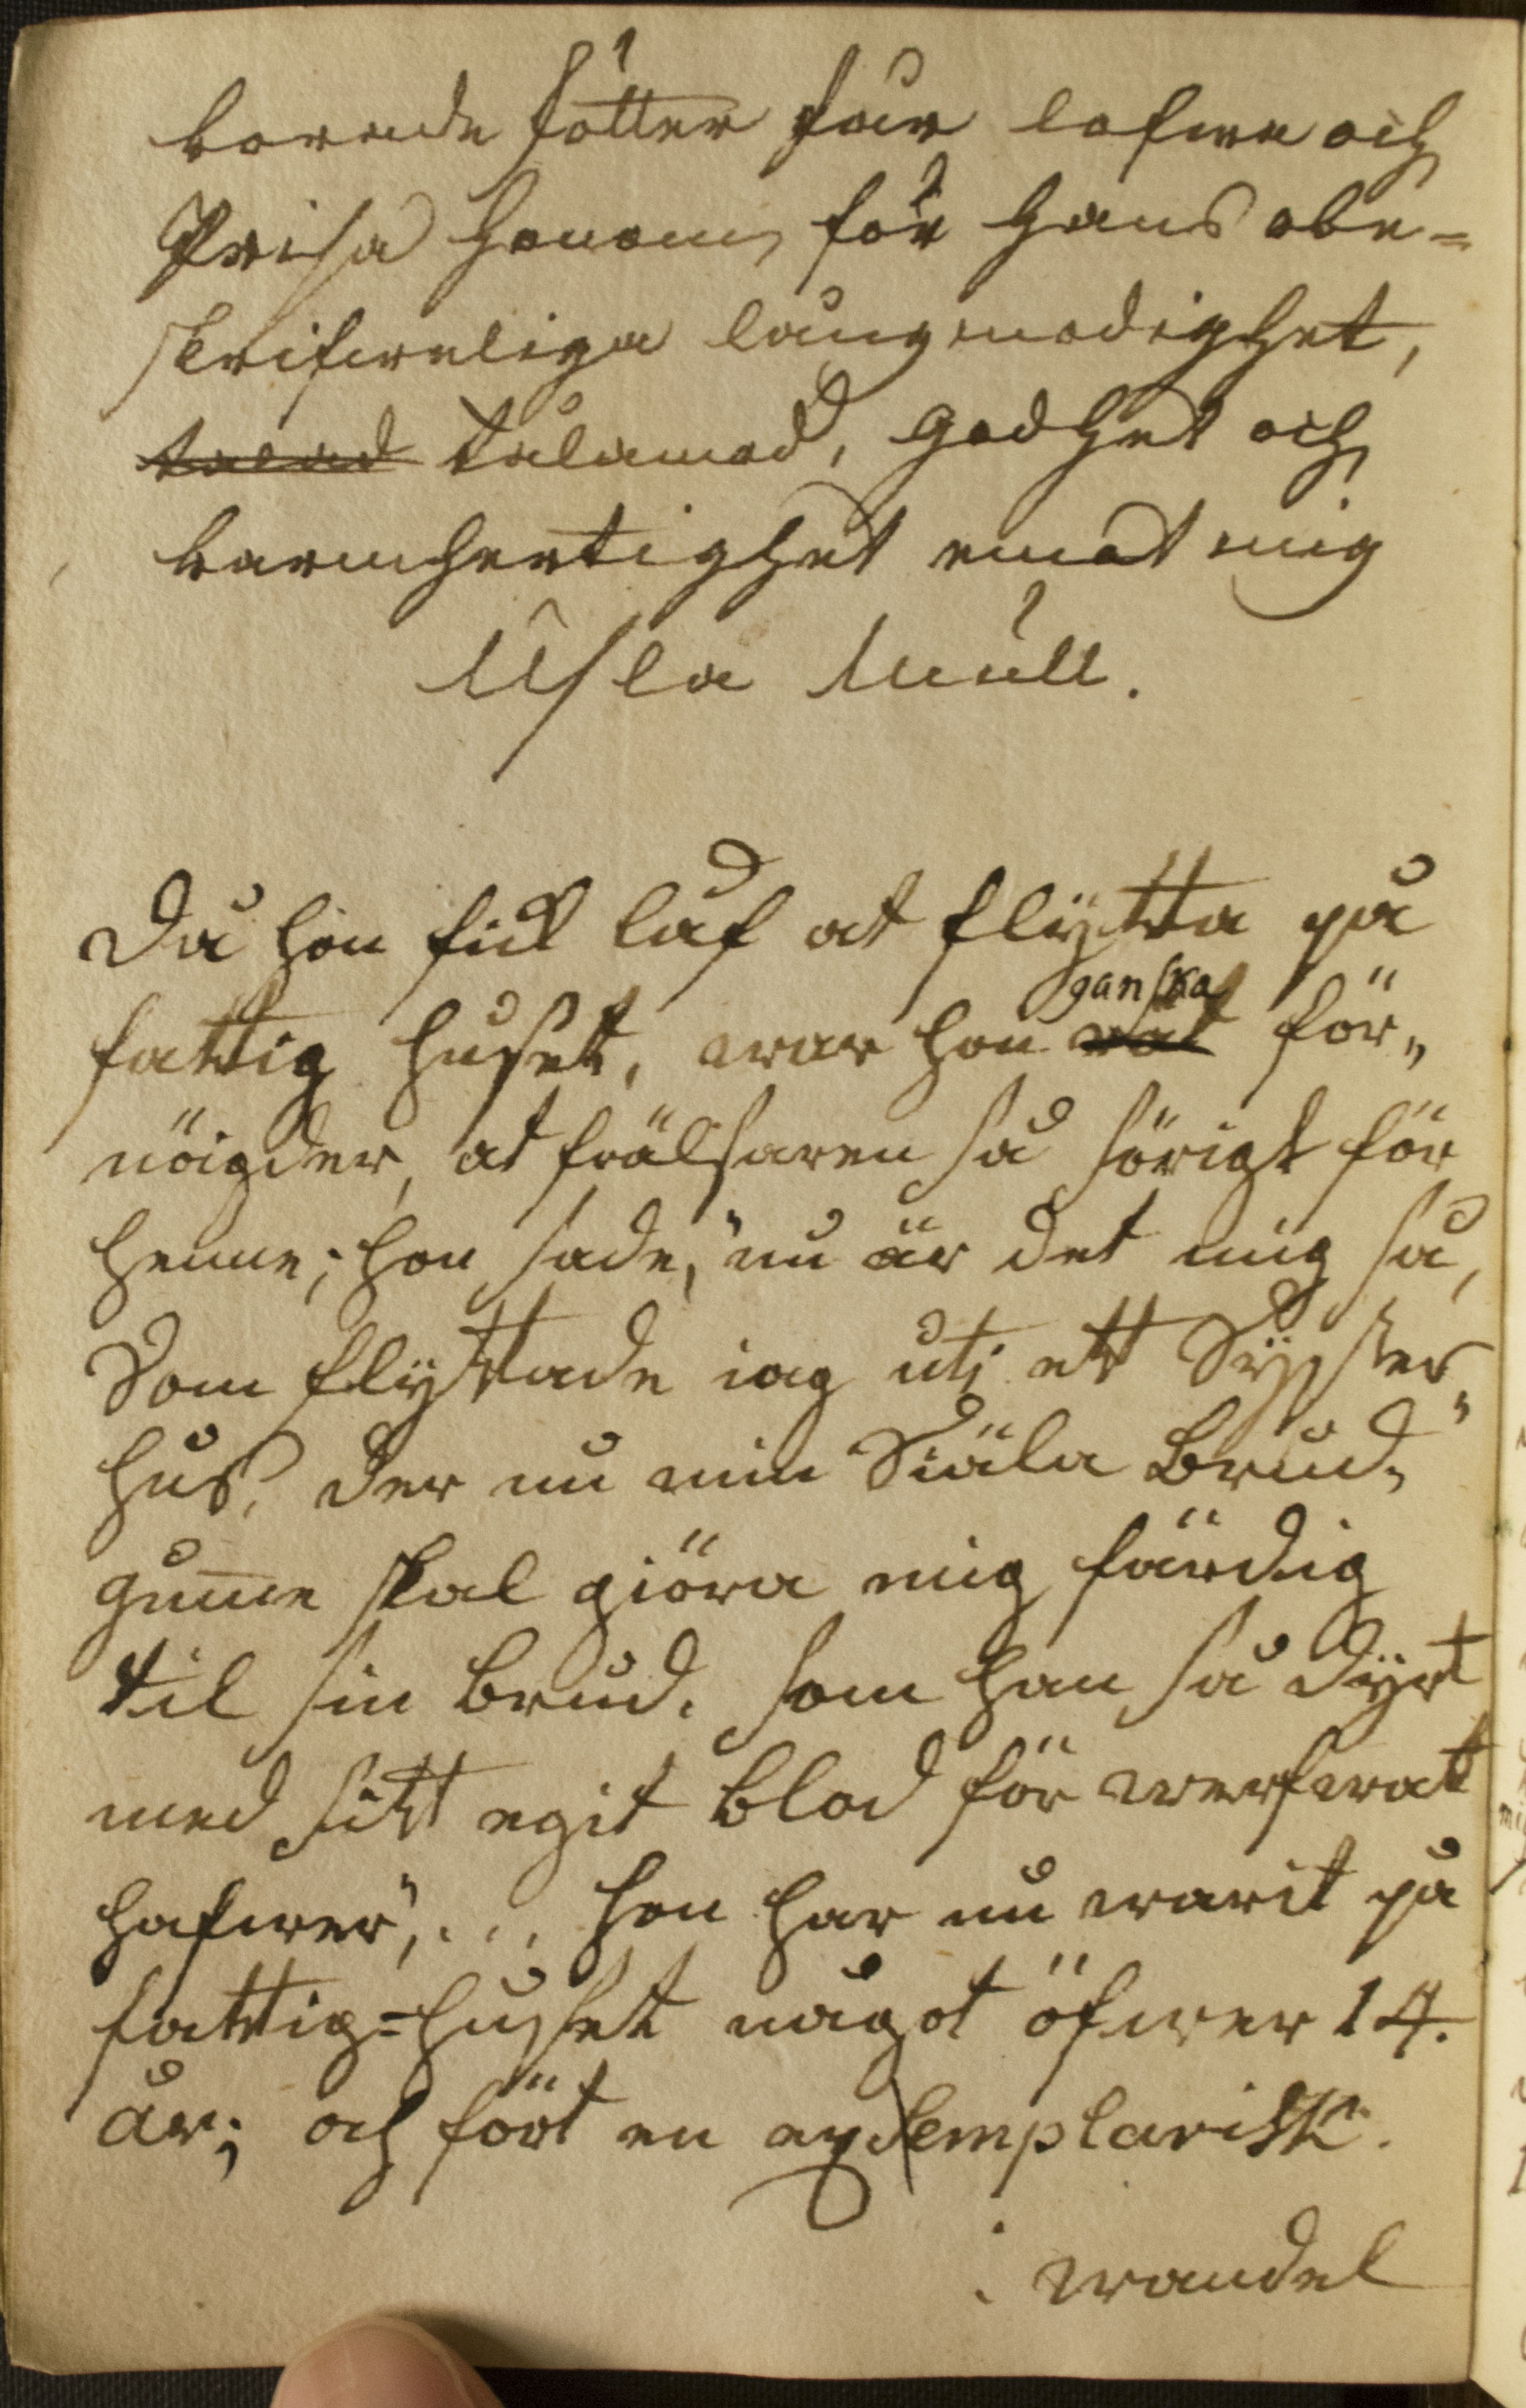 borade fötter får lofwa och
Prisa honom, för hans obe=
skrifweliga långmodighet,
tålamod, godhet och
barmhertighet emot mig
Usla Mull.
Då hon fick låf at flytta på
fattig huset, war hon ganska för„
nöigder, at frälsaren så sörigt för
henne; hon sade, "nu är det mig så,
Som flyttade iag uti ett Syster„
hus, der nu min Siäla Brud„
gum̅e skal giöra mig färdig
til sin brud, som han så dyrt
med sitt egit blod för werfwat
hafwer",... hon har nu warit på
fattig=huset något öfwer 14.
år; och fört en exsemplarisk.
wandel